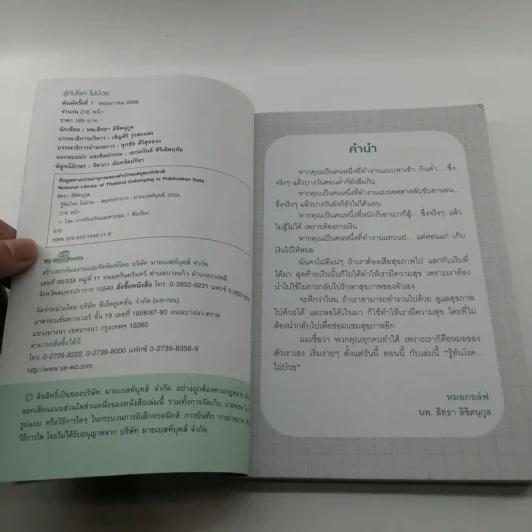 รู้ทันโรค ไม่ป่วย
พิมพ์ครั้งที่ 1 พฤษภาคม 2556
จำนวน 216 หน้า
ราคา 169 บาท
นักเขียน : นพ.สิทธา ลิขิตนุกูล
บรรณาธิการบริหาร : เชิญศิริ
บรรณาธิการอำนวยการ : ศุภชัย
ออกแบบปก และศิลปกรรม : เอกอนันต์
พิสูจน์อักษร : จิดาภา
ข้อมูลทางบรรณานุกรมของสำนักหอสมุดแห่งชาติ
National Library of Thailand Cataloging in Publication Data
สิทธา ลิขิตนุกูล.
216 หน้า
1. โรค--การป้องกันและควบคุม. I. ชื่อเรื่อง.
616
My Best Books
สร้างสรรค์ผลงานและจัดพิมพ์โดย บริษัท มายเบสท์บุคส์ จำกัด
จังหวัดสมุทรปราการ 10540 สั่งซื้อหนังสือ โทร. 0-2832-8231
จัดจำหน่ายโดย บริษัท ซีเอ็ดยูเคชั่น จำกัด (มหาชน)
ชั้น 19 เลขที่ 1858/87-90 ถนนบางนา-ตราด
แขวงบางนา เขตบางนา กรุงเทพฯ 10260
สามารถสั่งซื้อได้ที่
โทร. 0-2739-8222, 0-2739-8000 แฟกซ์ 0-2739-8356-9
http://www.se-ed.com
© ลิขสิทธิ์เป็นของบริษัท มายเบสท์บุคส์ จำกัด อย่างถูกต้องตามกฎหมาย
ลอกเลียนแบบส่วนใดส่วนหนึ่งของหนังสือเล่มนี้ รวมทั้งการจัดเก็บ ถ่ายทอด
รูปแบบ หรือวิธีการใดๆ ในกระบวนการอิเล็กทรอนิกส์ การบันทึก การถ่ายภาพ
วิธีการใด โดยไม่ได้รับอนุญาตจาก บริษัท มายเบสท์บุคส์ จำกัด
คำนำ
หากคุณเป็นคนหนึ่งที่ทำงานแบบหาเช้า กินค่ำ... ซึ่ง
จริงๆ แล้วบางวันตอนค่ำก็ยังไม่ได้กิน
หากคุณเป็นคนหนึ่งที่ทำงานแบบอดตาหลับขับตานอน...
ซึ่งจริงๆ แล้วบางวันยังก็ยังไม่ได้นอน
หากคุณเป็นคนหนึ่งที่หนักก็เอาเบาก็สู้... ซึ่งจริงๆ แล้ว
ไม่สู้ไม่ได้ เพราะต้องการเงิน
หากคุณเป็นคนหนึ่งที่ทำงานแทบแย่... แต่ตอนแก่ เก็บ
เงินไว้ให้หมอ
มันคงไม่ดีแน่ๆ ถ้าเราต้องเสียสุขภาพไป แลกกับเงินที่
ได้มา สุดท้ายเงินนั้นก็ไม่ได้ทำให้เรามีความสุข เพราะเราต้อง
นำไปใช้ในการกลับไปรักษาสุขภาพของตัวเอง
จะดีกว่าไหม ถ้าเราสามารถทำงานไปด้วย ดูแลสุขภาพ
ไปด้วยได้ และพอได้เงินมา ก็ใช้ทำให้เรามีความสุข โดยที่ไม่
ต้องนำกลับไปเพื่อซ่อมแซมสุขภาพอีก
ผมเชื่อว่า พวกคุณทุกคนทำได้ เพราะเราก็คือหมอของ
ตัวเราเอง เริ่มง่ายๆ ตั้งแต่วันนี้ ตอนนี้ กับเล่มนี้ "รู้ทันโรค...
ไม่ป่วย"
หมอกอล์ฟ
นพ. สิทธา ลิขิตนุกูล